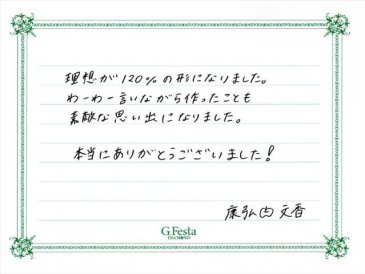 理想が120%の形になりました。
わーわー言いながら作ったことも
素敵な思い出になりました。
本当にありがとうございました!
康弘 文香
G.Festa
DIAMOND